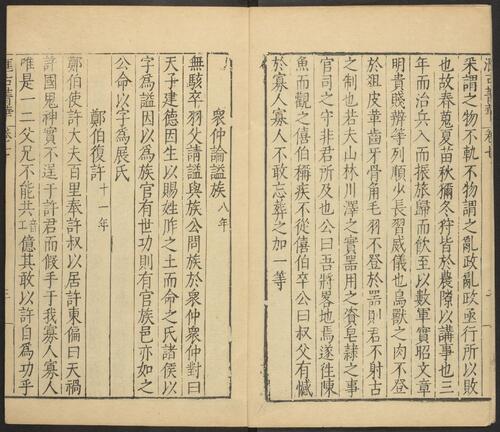 采謂之物不軌不物謂之亂政亂政亟行所以敗
也故春蒐夏苗秋獮冬狩皆於農隙以講事也三
年而治兵入而振旅歸而飲至以數軍實昭文章
明貴賤辨等列順少長習威儀也鳥獸之肉不登
於俎皮革齒牙骨角毛羽不登於器則君不射古
之制也若夫山林川澤之實器用之資皂隸之事
官司之守非君所及也公曰吾將畧地焉遂往陳
魚而觀之僖伯稱疾不從僖伯卒公曰叔父有憾
於寡人寡人不敢忘葬之加一等
衆仲論謚族 八年
無駭卒羽父請謚與族公問族於衆仲衆仲對曰
天子建德因生以賜姓胙之土而命之氏諸侯以
字為謚因以為族官有世功則有官族邑亦如之
公命以字為展氏
鄭伯復許 十一年
鄭伯使許大夫百里奉許叔以居許東偏曰天禍
許國鬼神實不逞于許君而假手于我寡人寡人
唯是一二父兄不能共億其敢以許自為功乎